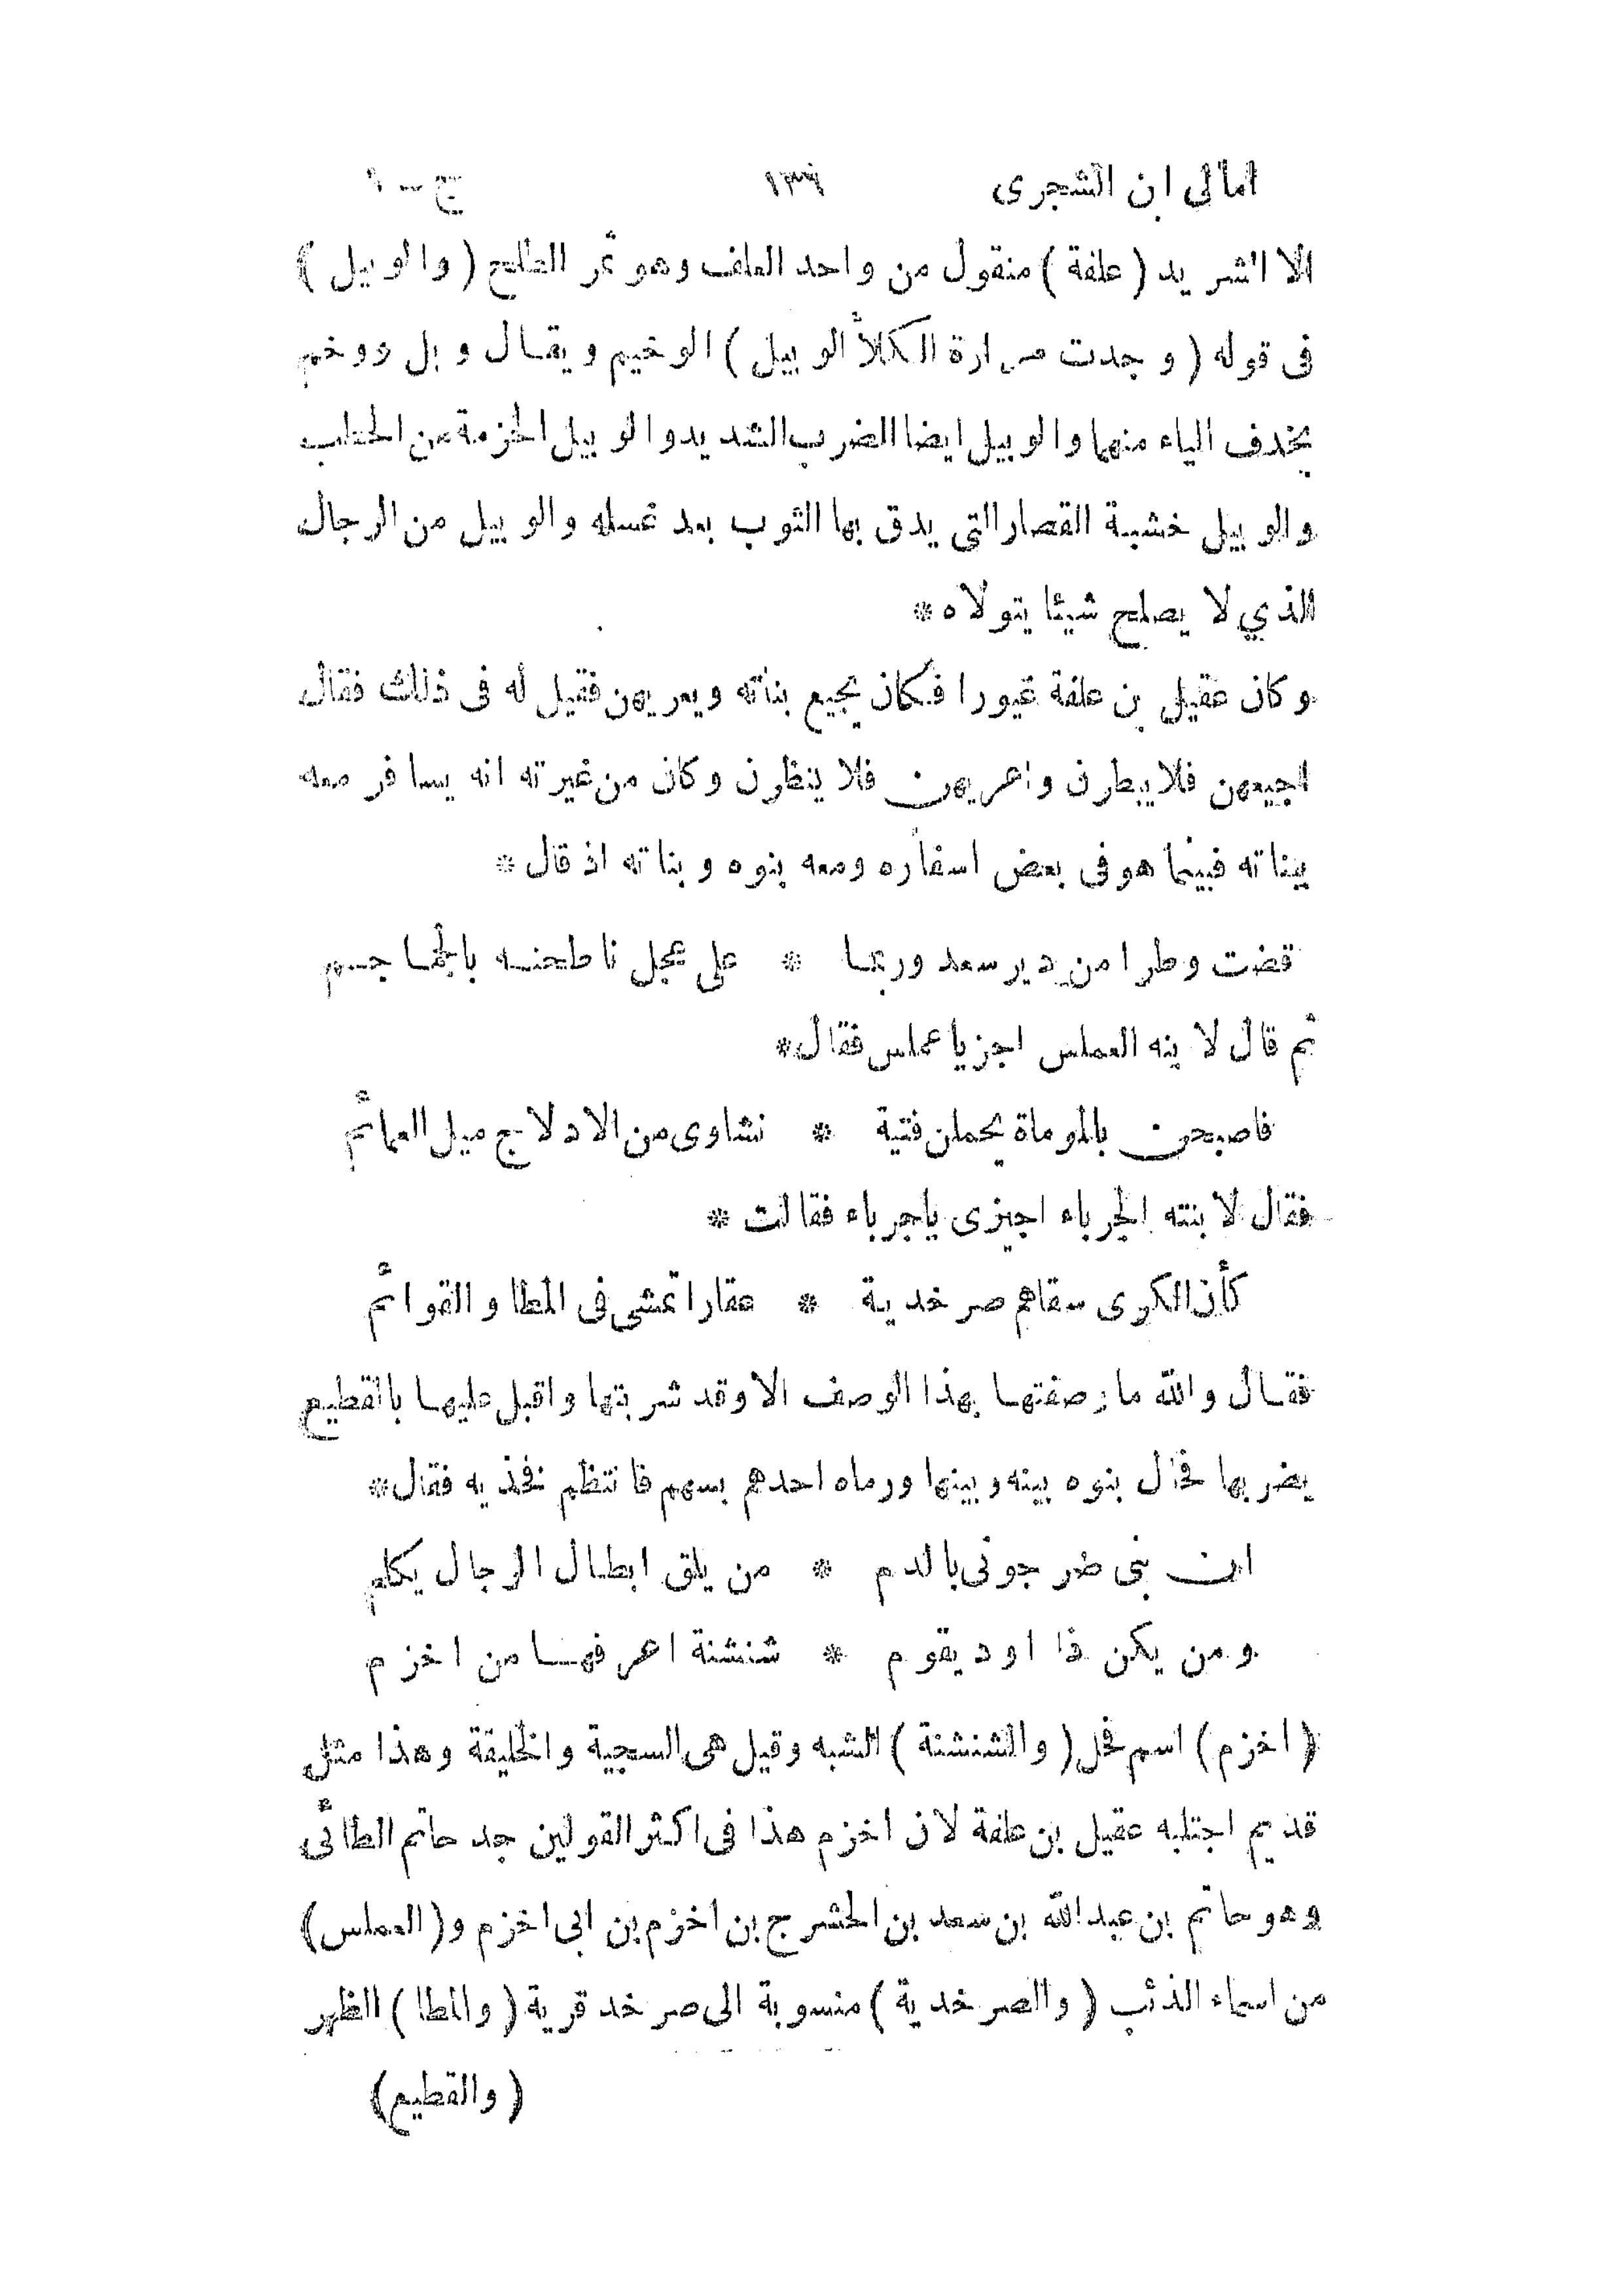 امالى ابن الشجرى ١٣٦ ج - ١
الا الشريد (علفة) منقول من واحد العلف وهو ثمر الطلح (والوبيل)
فى قوله (وجدت مرارة الكلأ الوبيل) الوخيم ويقال وبل ووخم
بحذف الياء منهما والوبيل ايضا الضرب الشديد والوبيل الحزمة من الحطب
والوبيل خشبة القصار التى يدق بها الثوب بعد غسله والوبيل من الرجال
الذي لا يصلح شيئا يتولاه *
وكان عقيل بن علفة غيورا فكان يجيع بناته ويعريهن فقيل له فى ذلك فقال
اجيعهن فلا يبطرن واعريهن فلا ينظرن وكان من غيرته انه يسافر معه
ببناته فبينما هو فى بعض اسفاره ومعه بنوه وبناته اذ قال *
قضت وطرا من دير سعد وربما * على عجل ناطحنه بالجماجم
ثم قال لابنه العملس اجز يا عملس فقال *
فاصبحن بالموماة يحملن فتية * نشاوى من الادلاج ميل العمائم
فقال لابنته الجرباء اجيزى ياجرباء فقالت *
كأن الكرى سقاهم صرخدية * عقارا تمشى فى المطا والقوائم
فقال والله ما وصفتها بهذا الوصف الا وقد شربتها واقبل عليها بالقطيع
يضربها فحال بنوه بينه وبينها ورماه احدهم بسهم فانتظم فخذيه فقال *
ان بنى ضرجونى بالدم * من يلق ابطال الرجال يكلم
ومن يكن ذا اود يقوم * شنشنة اعرفها من اخزم
(اخزم) اسم فحل (والشنشنة) الشبه وقيل هى السجية والخليقة وهذا مثل
قديم اجتلبه عقيل بن علفة لان اخزم هذا فى اكثر القولين جد حاتم الطائى
وهو حاتم بن عبدالله بن سعد بن الحشرج بن اخزم بن ابى اخزم و(العملس)
من اسماء الذئب (والصرخدية) منسوبة الى صرخد قرية (والمطا) الظهر
(والقطيع)